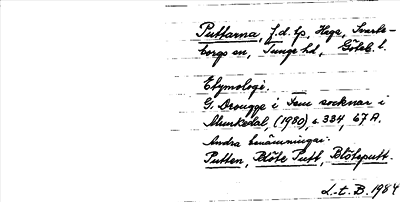 Puttarna, f.d. lp, Hega, Svarte-
borgs sn, Tunge hd, Göteb. l.
Etymologi:
G. Drougge i Fem socknar i
Munkedal, (1980), s. 334, 67 A.
Andra benämningar:
Putten, Blöte Putt, Blöteputt.
L.t. B. 1984